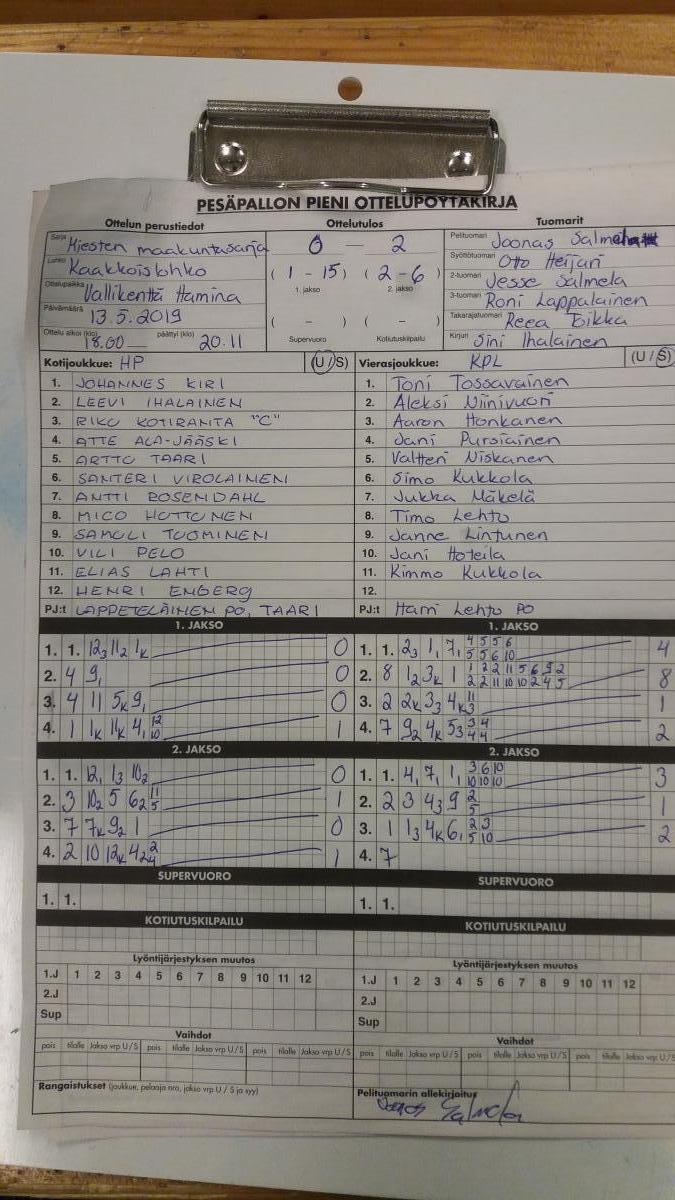 PESÄPALLON PIENI OTTELUPÖYTÄKIRJA
Ottelun perustiedot
Sarja Miesten maakuntasarja
Lohko Kaakkoislohko
Ottelupaikka Vallikenttä Hamina
Päivämäärä 13.5.2019
Ottelu alkoi (klo) 18.00 päättyi (klo) 20.11
Ottelutulos
0 – 2
( 1 – 15 ) ( 2 – 6 )
1. jakso 2. jakso
( – ) ( – )
Supervuoro Kotiutuskilpailu
Tuomarit
Pelituomari Joonas Salmela
Syöttötuomari Otto Heijari
2-tuomari Jesse Salmela
3-tuomari Roni Lappalainen
Takarajatuomari Reea Eikka
Kirjuri Sini Ihalainen
Kotijoukkue: HP (U/S)
1. JOHANNES KIRI
2. LEEVI IHALAINEN
3. RIKU KOTIRANTA "C"
4. ATTE ALA-JÄÄSKI
5. ARTTU TAARI
6. SANTERI VIROLAINEN
7. ANTTI ROSENDAHL
8. MICO HUTTUNEN
9. SAMULI TUOMINEN
10. VILI PELO
11. ELIAS LAHTI
12. HENRI ENBERG
PJ:t LAPPETELÄINEN PO, TAARI
Vierasjoukkue: KPL (U/S)
1. Toni Tossavainen
2. Aleksi Niinivuori
3. Aaron Honkanen
4. Jani Pursiainen
5. Valtteri Niskanen
6. Simo Kukkola
7. Jukka Mäkelä
8. Timo Lehto
9. Janne Lintunen
10. Jani Hoteila
11. Kimmo Kukkola
12.
PJ:t Harri Lehto PO
1. JAKSO
1. 1. 12₃ 11₂ 1ₖ 0
2. 4 9₁ 0
3. 4 11 5ₖ 9₁ 0
4. 1 1ₖ 11ₖ 4₁ 12 10 1
2. JAKSO
1. 1. 12₁ 1₃ 10₂ 0
2. 3 10₂ 5 6₂ 11 5 1
3. 7 7ₖ 9₂ 1 0
4. 2 10 12ₖ 4₂ 2 4 1
SUPERVUORO
1. 1.
KOTIUTUSKILPAILU
Lyöntijärjestyksen muutos
1.J 1 2 3 4 5 6 7 8 9 10 11 12
2.J
Sup
Vaihdot
pois tilalle Jakso vrp U/S pois tilalle Jakso vrp U/S pois tilalle Jakso vrp U/S
Rangaistukset (joukkue, pelaaja nro, jakso vrp U / S ja syy)
1. JAKSO
1. 1. 2₃ 1₁ 7₁ 4 5 5 6 5 5 6 10 4
2. 8 1₂ 3ₖ 1 1 2 2 11 5 6 9 2 2 2 11 10 10 2 4 5 8
3. 2 2ₖ 3₃ 4ₖ 11 3 1
4. 7 9₂ 4ₖ 5₃ 3 4 4 4 2
2. JAKSO
1. 1. 4₁ 7₁ 1₁ 3 6 10 10 10 10 3
2. 2 3 4₃ 9 2 5 1
3. 1 1₃ 4ₖ 6₁ 2 3 5 10 2
4. 7
SUPERVUORO
1. 1.
KOTIUTUSKILPAILU
Lyöntijärjestyksen muutos
1.J 1 2 3 4 5 6 7 8 9 10 11 12
2.J
Sup
Vaihdot
pois tilalle Jakso vrp U/S pois tilalle Jakso vrp U/S pois tilalle Jakso vrp U/S
Pelituomarin allekirjoitus
Joonas Salmela